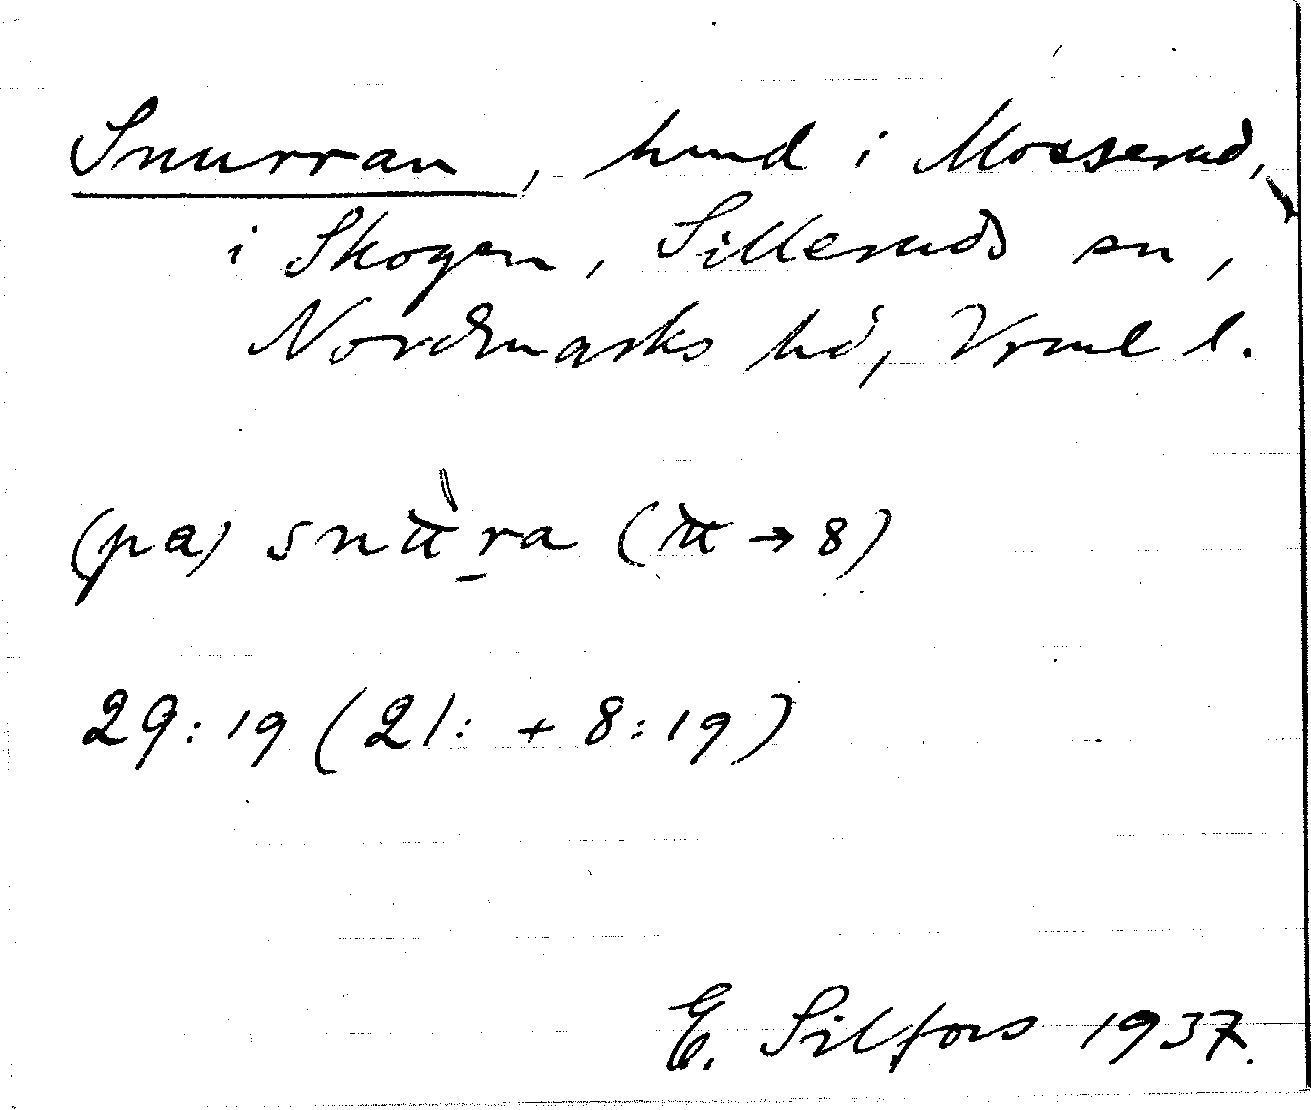 Snurran, hmd i Mosserud,
i Skogen, Silleruds sn,
Nordmarks hd, Vrml l.
(pa) snu̇̀ra (u → 8)
29:19 (21: + 8:19)
E. Silfors 1937.